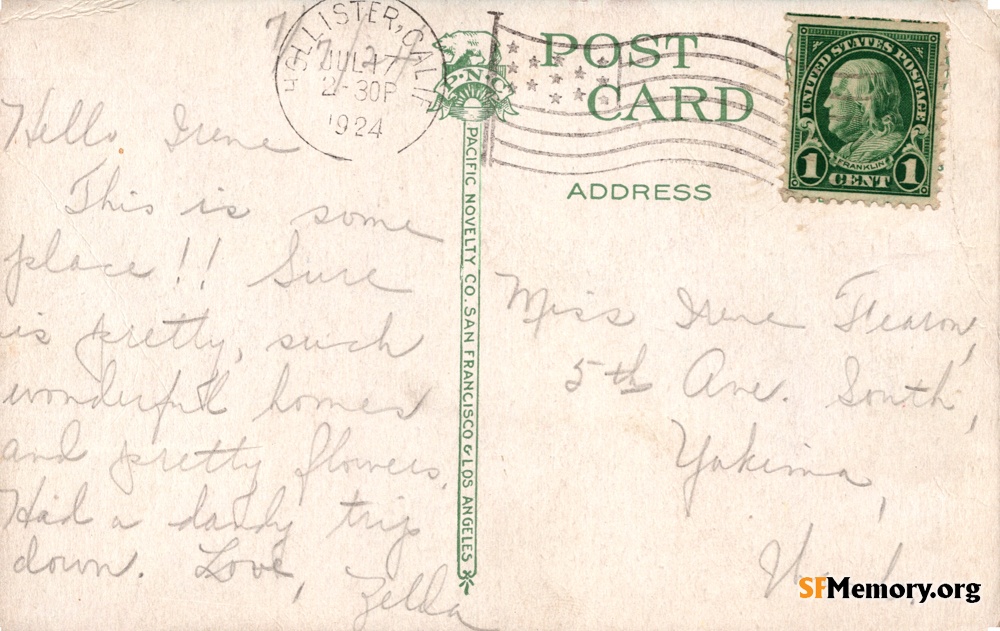 7/17/
HOLLISTER, CALIF
JUL 17
2-30P
1924
P.N.C.
PACIFIC NOVELTY CO. SAN FRANCISCO & LOS ANGELES
POST
CARD
ADDRESS
UNITED STATES POSTAGE
FRANKLIN
1 CENT 1
Hello Irene
This is some
place!! Sure
is pretty, such
wonderful homes
and pretty flowers.
Had a dandy trip
down. Love,
Zelda
Miss Irene Fearon,
5th Ave. South,
Yakima,
SFMemory.org